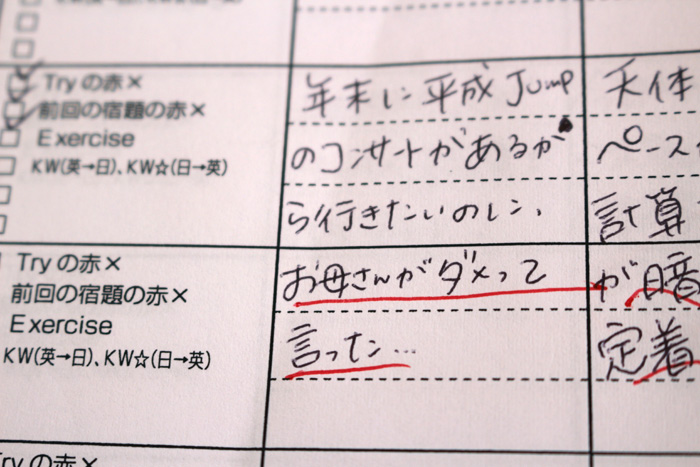 Try の赤×
前回の宿題の赤×
Exercise
KW(英→日)、KW☆(日→英)
年末に平成Jump
のコンサートがあるか
ら行きたいのに、
天体
ペース
計算
Try の赤×
前回の宿題の赤×
Exercise
KW(英→日)、KW☆(日→英)
お母さんがダメって
言った…
が暗
定着
Try の赤×